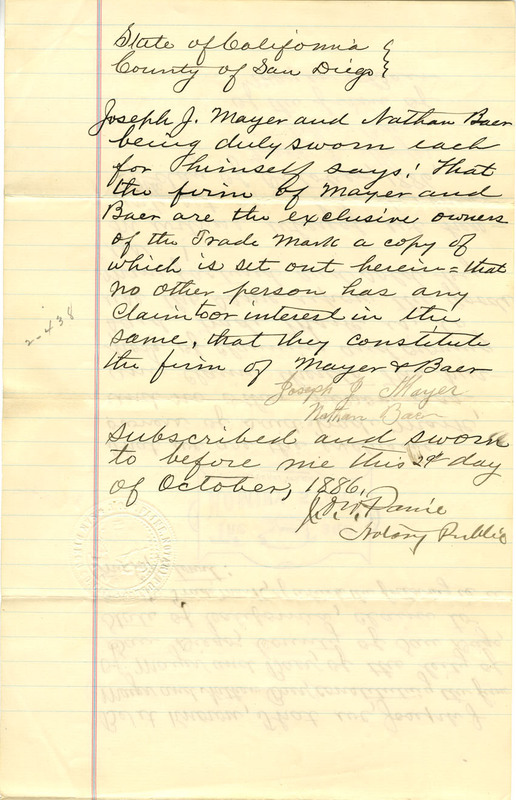 State of California
County of San Diego
Joseph J. Mayer and Nathan Baer
being duly sworn each
for himself says: That
the firm of Mayer and
Baer are the exclusive owners
of the Trade Mark a copy of
which is set out herein = that
no other person has any
claim to or interest in the
same, that they constitute
the firm of Mayer & Baer
Joseph J. Mayer
Nathan Baer
Subscribed and sworn
to before me this 2d day
of October, 1886,
Notary Public
2-438